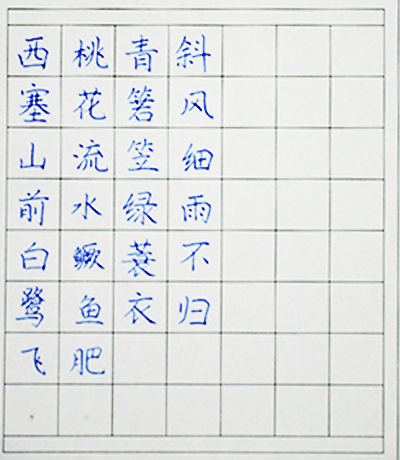 西塞山前白鹭飞
桃花流水鳜鱼肥
青箬笠绿蓑衣
斜风细雨不归